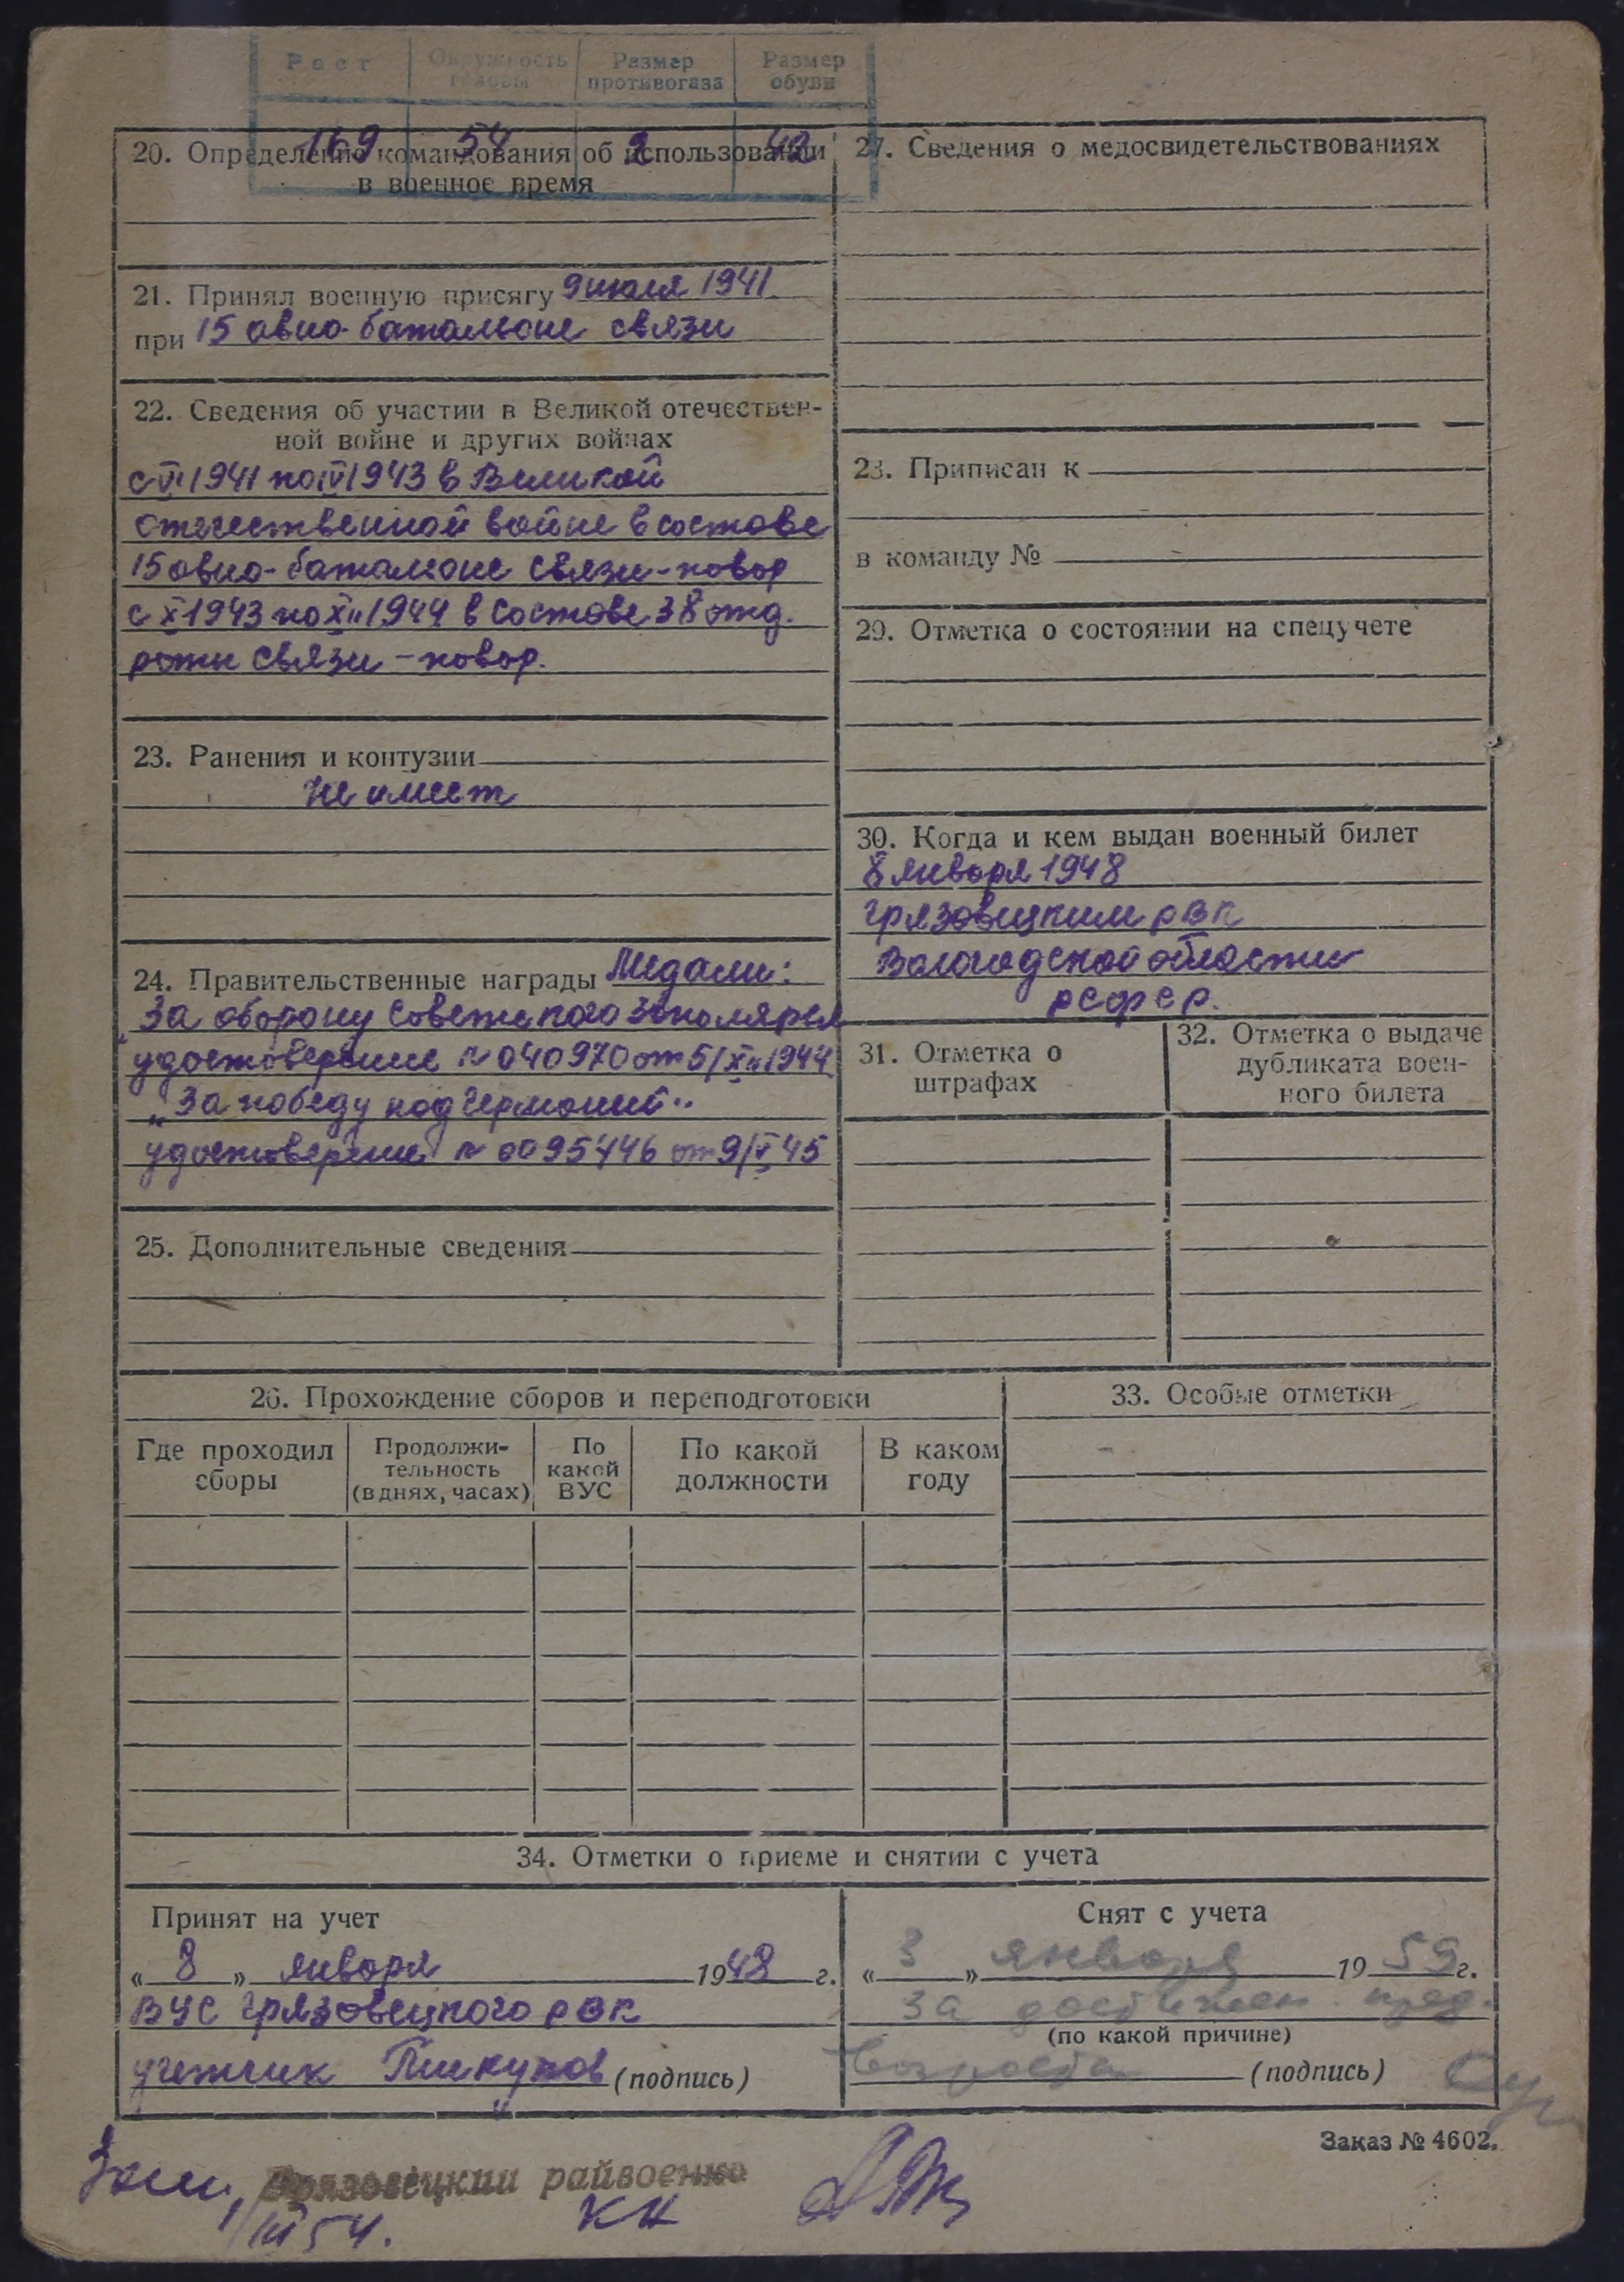 Рост Окружность головы Размер противогаза Размер обуви
169 54 2 42
20. Определение командования об использовании
в военное время
21. Принял военную присягу 9 июля 1941
при 15 авиа-батальоне связи
22. Сведения об участии в Великой отечествен-
ной войне и других войнах
1941 по 1943 в Великой
отечественной войне в составе
15 авиа-батальоне связи-повар
с X 1943 по XII 1944 в составе 38 отд.
роты связи - повар.
23. Ранения и контузии
не имеет
24. Правительственные награды Медали:
„За оборону Советского Заполярья
удостоверение № 040970 от 5/XII 1944
„За победу над Германией"
удостоверение № 0095446 от 9/V 45
25. Дополнительные сведения
27. Сведения о медосвидетельствованиях
28. Приписан к
в команду №
29. Отметка о состоянии на спецучете
30. Когда и кем выдан военный билет
8 января 1948
Грязовецким РВК
Вологодской области
РСФСР.
31. Отметка о
штрафах
32. Отметка о выдаче
дубликата воен-
ного билета
26. Прохождение сборов и переподготовки
Где проходил
сборы
Продолжи-
тельность
(в днях, часах)
По
какой
ВУС
По какой
должности
В каком
году
33. Особые отметки
34. Отметки о приеме и снятии с учета
Принят на учет
« 8 » января 1948 г.
ВУС Грязовецкого РВК
учетчик (подпись)
Снят с учета
« 3 » января 1959 г.
за достижен. пред.
(по какой причине)
возраста (подпись)
Заказ № 4602.
Грязовецкий райвоенко
III 54.